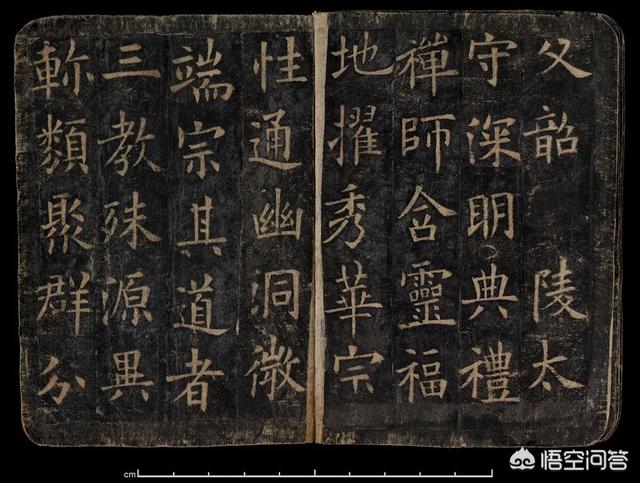 父韶 陵太
守深明典禮
禪師含靈福
地擢秀華宗
性通幽洞微
端宗其道者
三教殊源異
軫類聚群分
cm
悟空问答